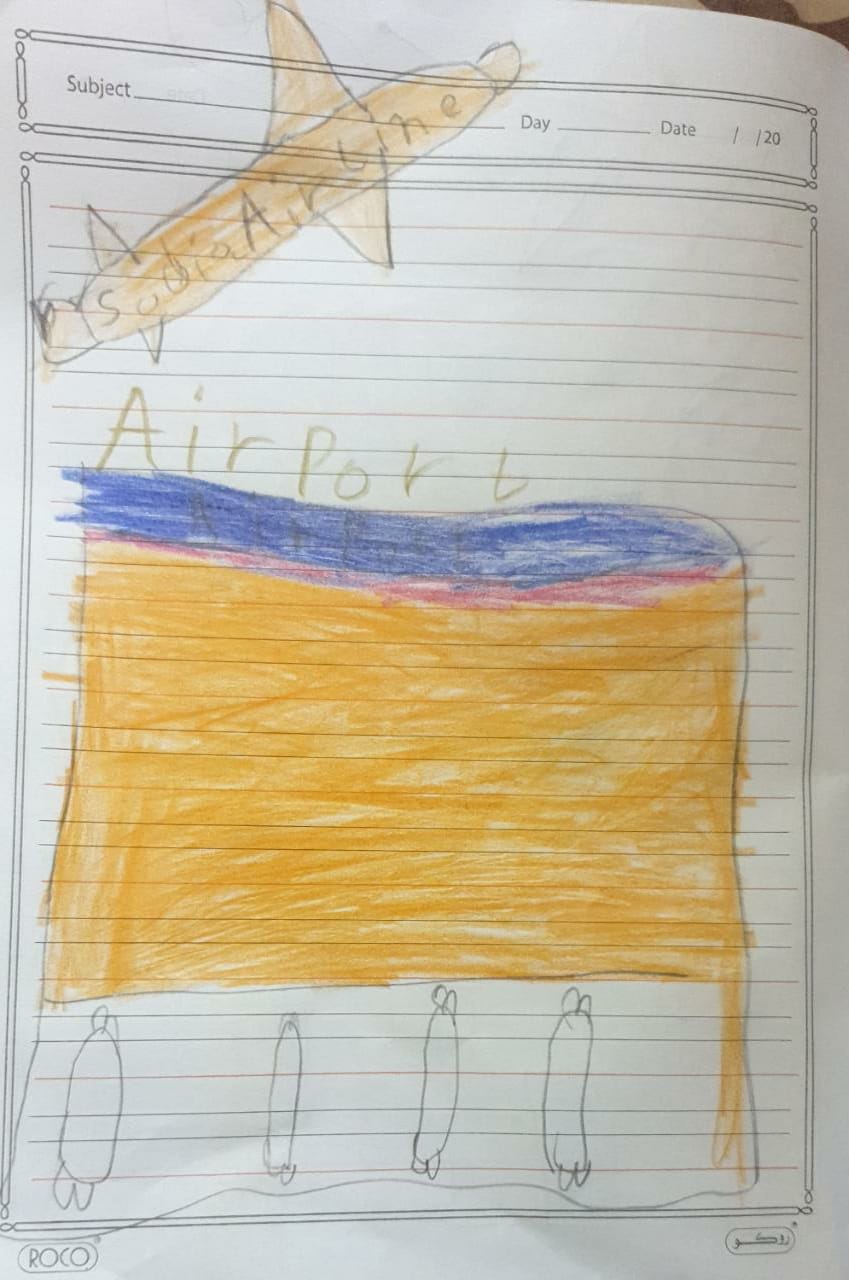 Subject
Day Date / /20
Sudia Air Line
AirPort
AirPort
ROCO
روكو